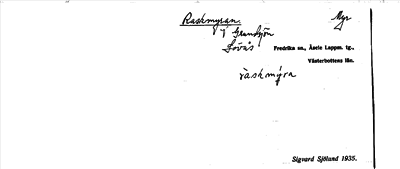 Raskmyran. Myr
V Gransjön
Lövås Fredrika sn., Åsele Lappm. tg.,
Västerbottens län.
ràskmýra
Sigvard Sjöland 1935.